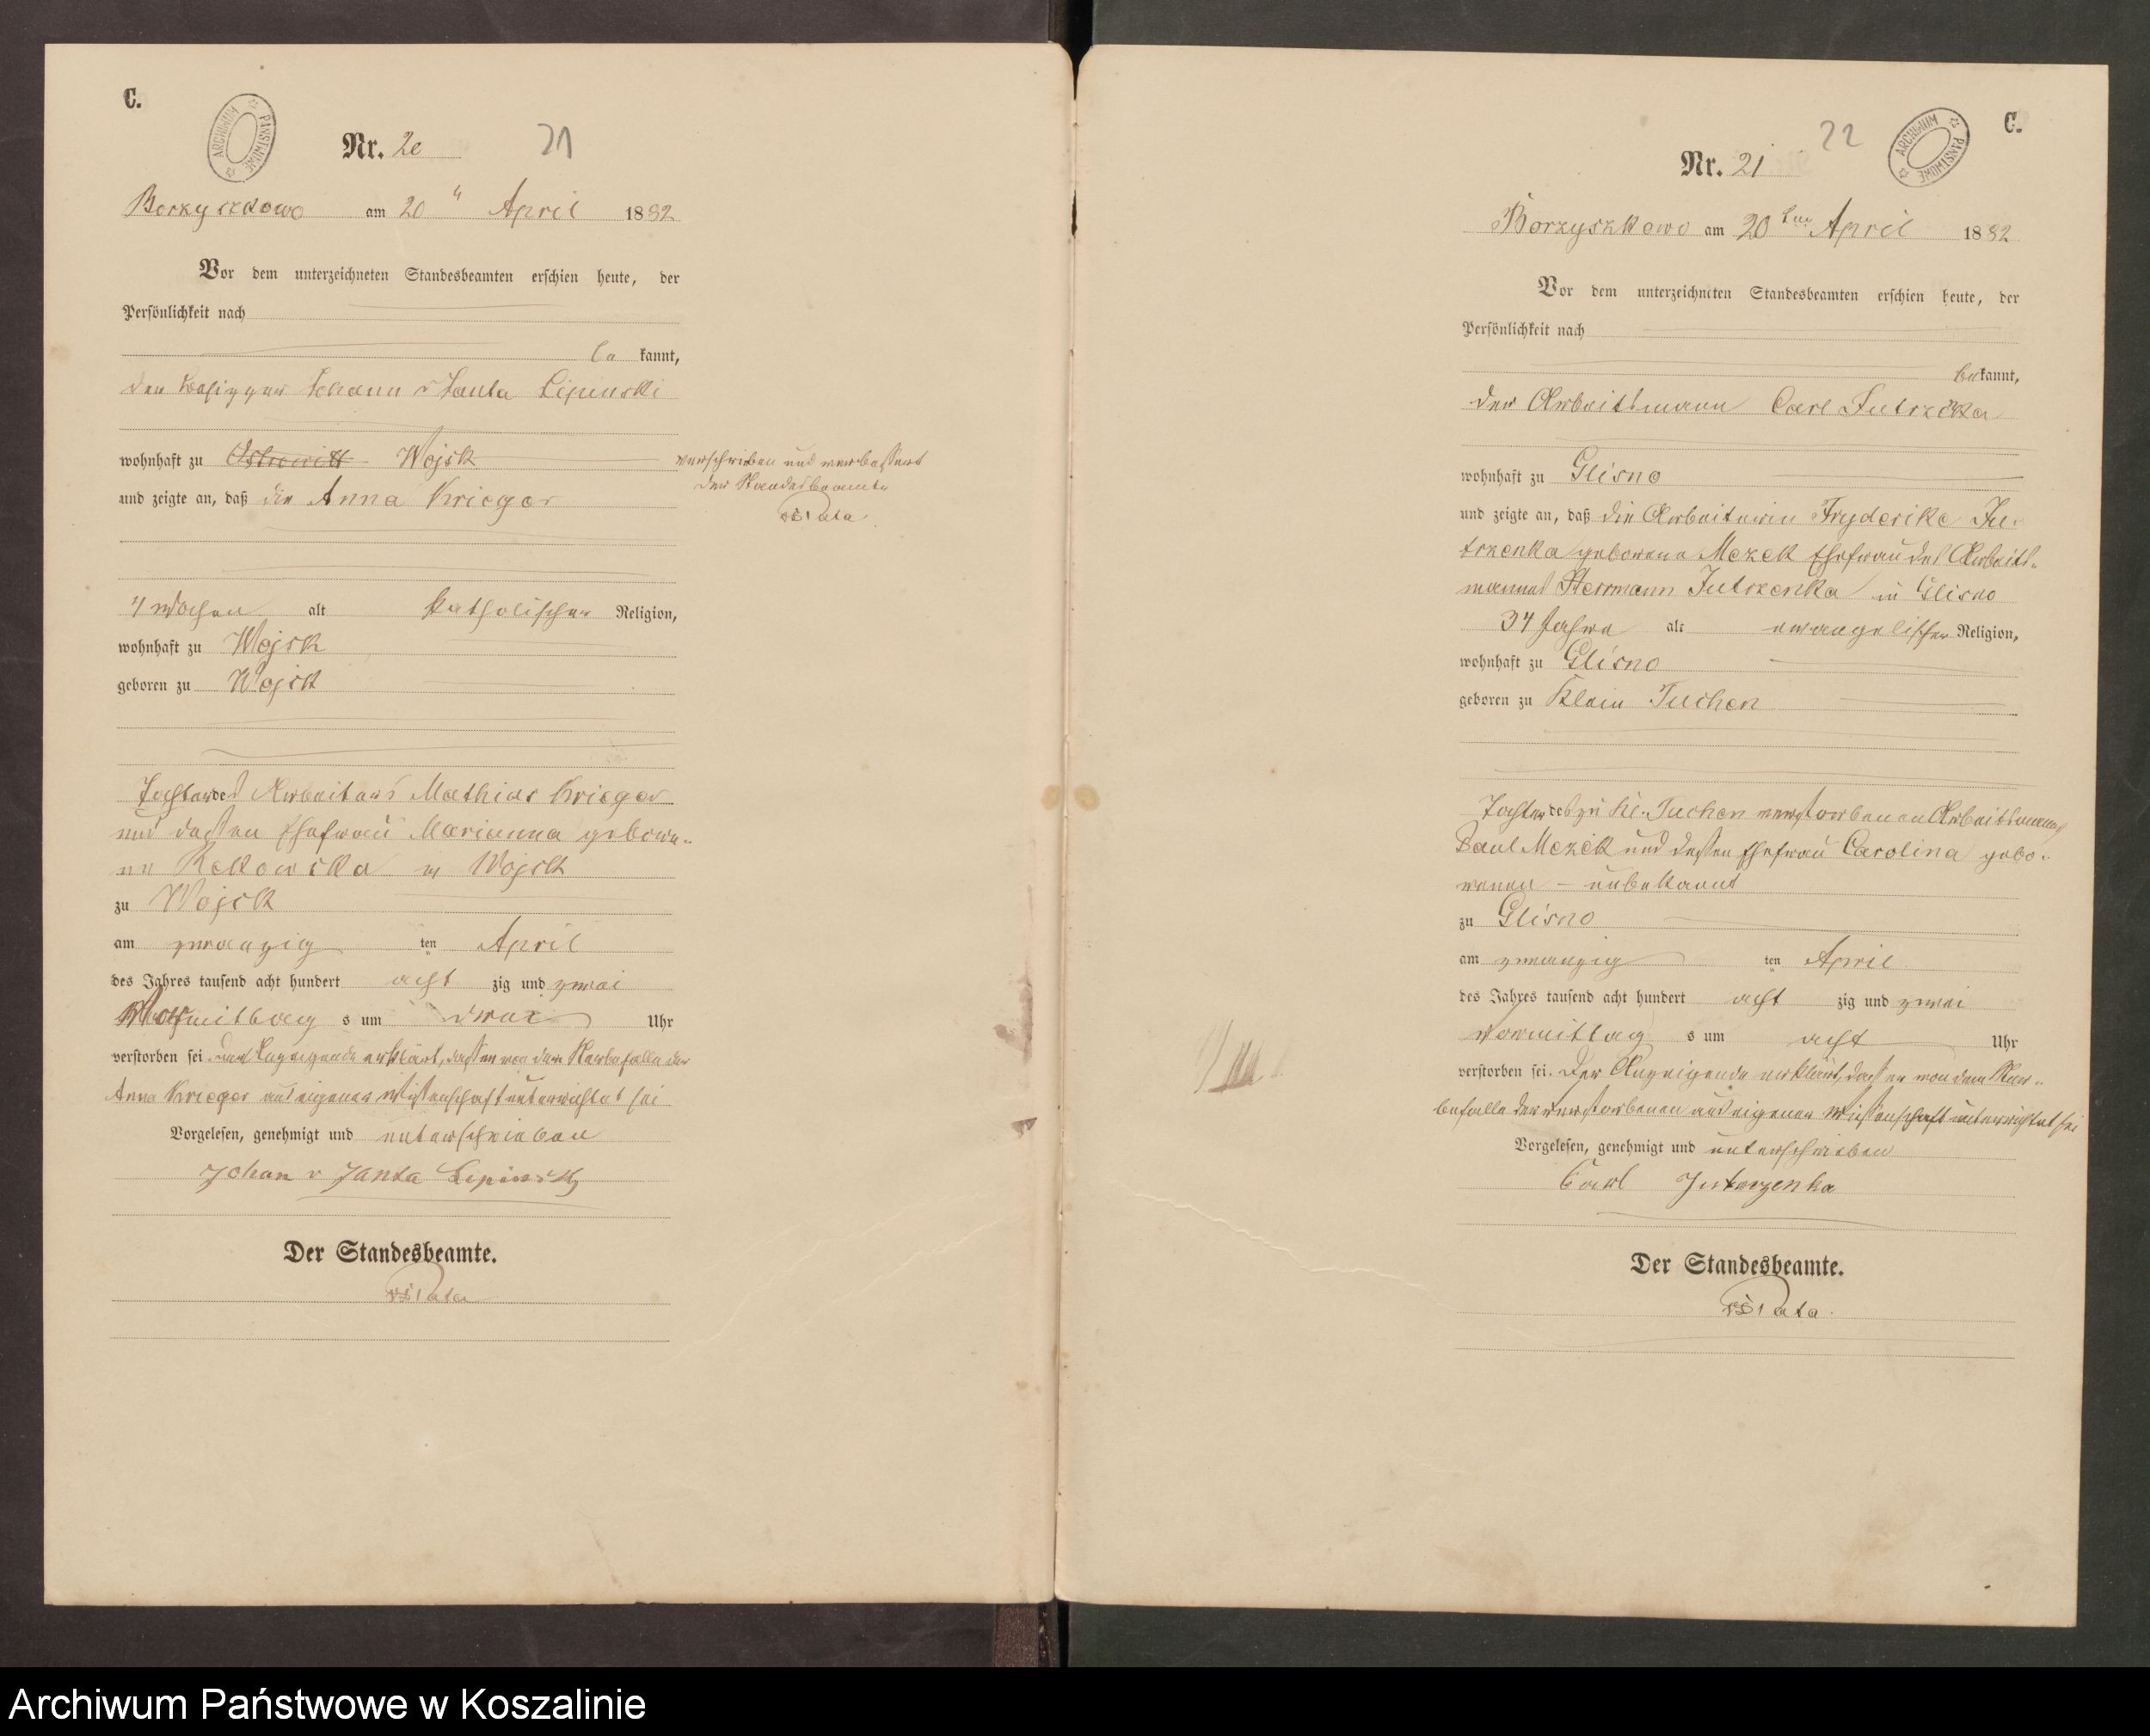 C.
ARCHIWUM PAŃSTWOWE
Nr. 20
21
Borzyszkowo am 20 " April 1882
Vor dem unterzeichneten Standesbeamten erschien heute, der
Persönlichkeit nach
be kannt,
der Besitzer Johann v Janta Lipinski
wohnhaft zu Ostrowitt Wojsk
verschrieben und verbessert
der Standesbeamte
Pata
und zeigte an, daß die Anna Krieger
Wochen alt katholischer Religion,
wohnhaft zu Wojsk
geboren zu Wojsk
Tochter des Arbeiters Mathias Krieger
und dessen Ehefrau Marianna gebore-
ne Rekowska in Wojsk
zu Wojsk
am zwanzig ten April
des Jahres tausend acht hundert acht zig und zwei
mittag s um drei Uhr
verstorben sei. Der Anzeigende erklärt, daß er von dem Sterbefalle der
Anna Krieger aus eigener Wissenschaft unterrichtet sei
Vorgelesen, genehmigt und unterschrieben
Johan v Janta Lipinski
Der Standesbeamte.
Pata
C.
ARCHIWUM PAŃSTWOWE
22
Nr. 21
Borzyszkowo am 20 ten April 1882
Vor dem unterzeichneten Standesbeamten erschien heute, der
Persönlichkeit nach
bekannt,
der Arbeitsmann Carl Jutrzenka
wohnhaft zu Glisno
und zeigte an, daß die Arbeiterin Fryderike Ju-
trzenka geborene Mezek Ehefrau des Arbeits-
mannes Herrmann Jutrzenka in Glisno
34 Jahre alt evangelischer Religion,
wohnhaft zu Glisno
geboren zu Klein Tuchen
Tochter des zu Kl. Tuchen verstorbenen Arbeitsmannes
Paul Mezek und dessen Ehefrau Carolina gebo-
renen – unbekannt
zu Glisno
am zwanzig ten April
des Jahres tausend acht hundert acht zig und zwei
Vormittag s um acht Uhr
verstorben sei. Der Anzeigende erklärt, daß er von dem Ster-
befalle der verstorbenen aus eigener Wissenschaft unterrichtet sei
Vorgelesen, genehmigt und unterschrieben
Carl Jutrzenka
Der Standesbeamte.
Pata
Archiwum Państwowe w Koszalinie